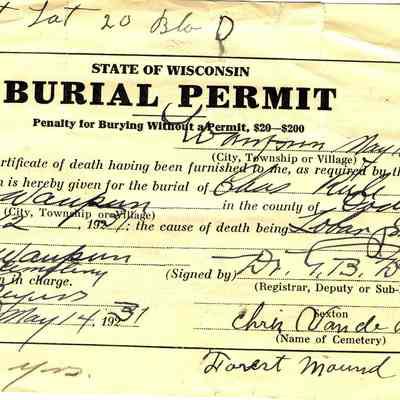 Lot 20 Blo D
STATE OF WISCONSIN
BURIAL PERMIT
Penalty for Burying Without a Permit, $20—$200
Waupun May
(City, Township or Village)
ertificate of death having been furnished to me, as required by the
n is hereby given for the burial of Chas
Waupun in the county of
(City, Township or Village)
2 192 : the cause of death being Lobar
Waupun
(Signed by) Dr.
n in charge. (Registrar, Deputy or Sub-
May 14. 1931 Sexton
Chris Vande
(Name of Cemetery)
yrs. Forest Mound